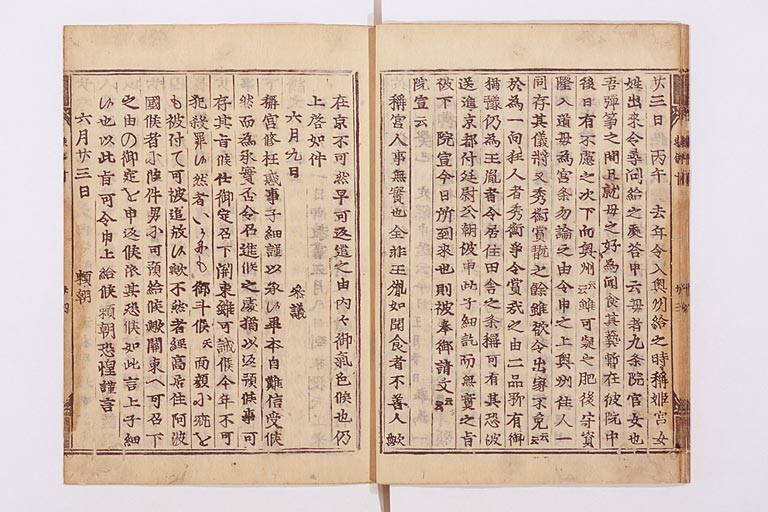 廿三日 丙午 去年令入奥州給之時稱姫宮女
姓出来令尋問給之處答申云母者九条院官女也
吾彈箏之間且就母之好為聞食其藝暫在彼院中
後日有不慮之次下向奥州云云雖可疑之肥後守資
隆入道母為宮条勿論之由令申之上奥州住人一
同存其儀將又秀衡賞翫之餘雖令出家不免云云
於為一向狂人者秀衡爭令賞哉之由二品所有御
猶豫仍為王胤者令居住田舎之条猶可有其恐波
送進京都付廷尉公朝被申此子細訖而無實之旨
被下 院宣今日所到来也則被奉御請文云云
院宣云
稱宮人事無實也全非王胤如聞食者不善人歟
在京不可然早可返遣之由内々御氣色候也仍
上啓如件
六月九日 参議
稱宮修狂惑事子細謹以承候畢本自難信受候
然而為承實否令召進候之處猶以返預候事可
存其旨候仕御定召下関東雖可誡候今年不可
犯殺罪候然者いかにも御斗候天面額小疵を
も被付て可被追放候歟不然者經高居住阿波
國候者小候件男不可預給候歟関東へ可召下
之由の御定を申返候依其恐候如此言上子細
候也以此旨可令申上給候頼朝恐惶謹言
六月廿三日 頼朝